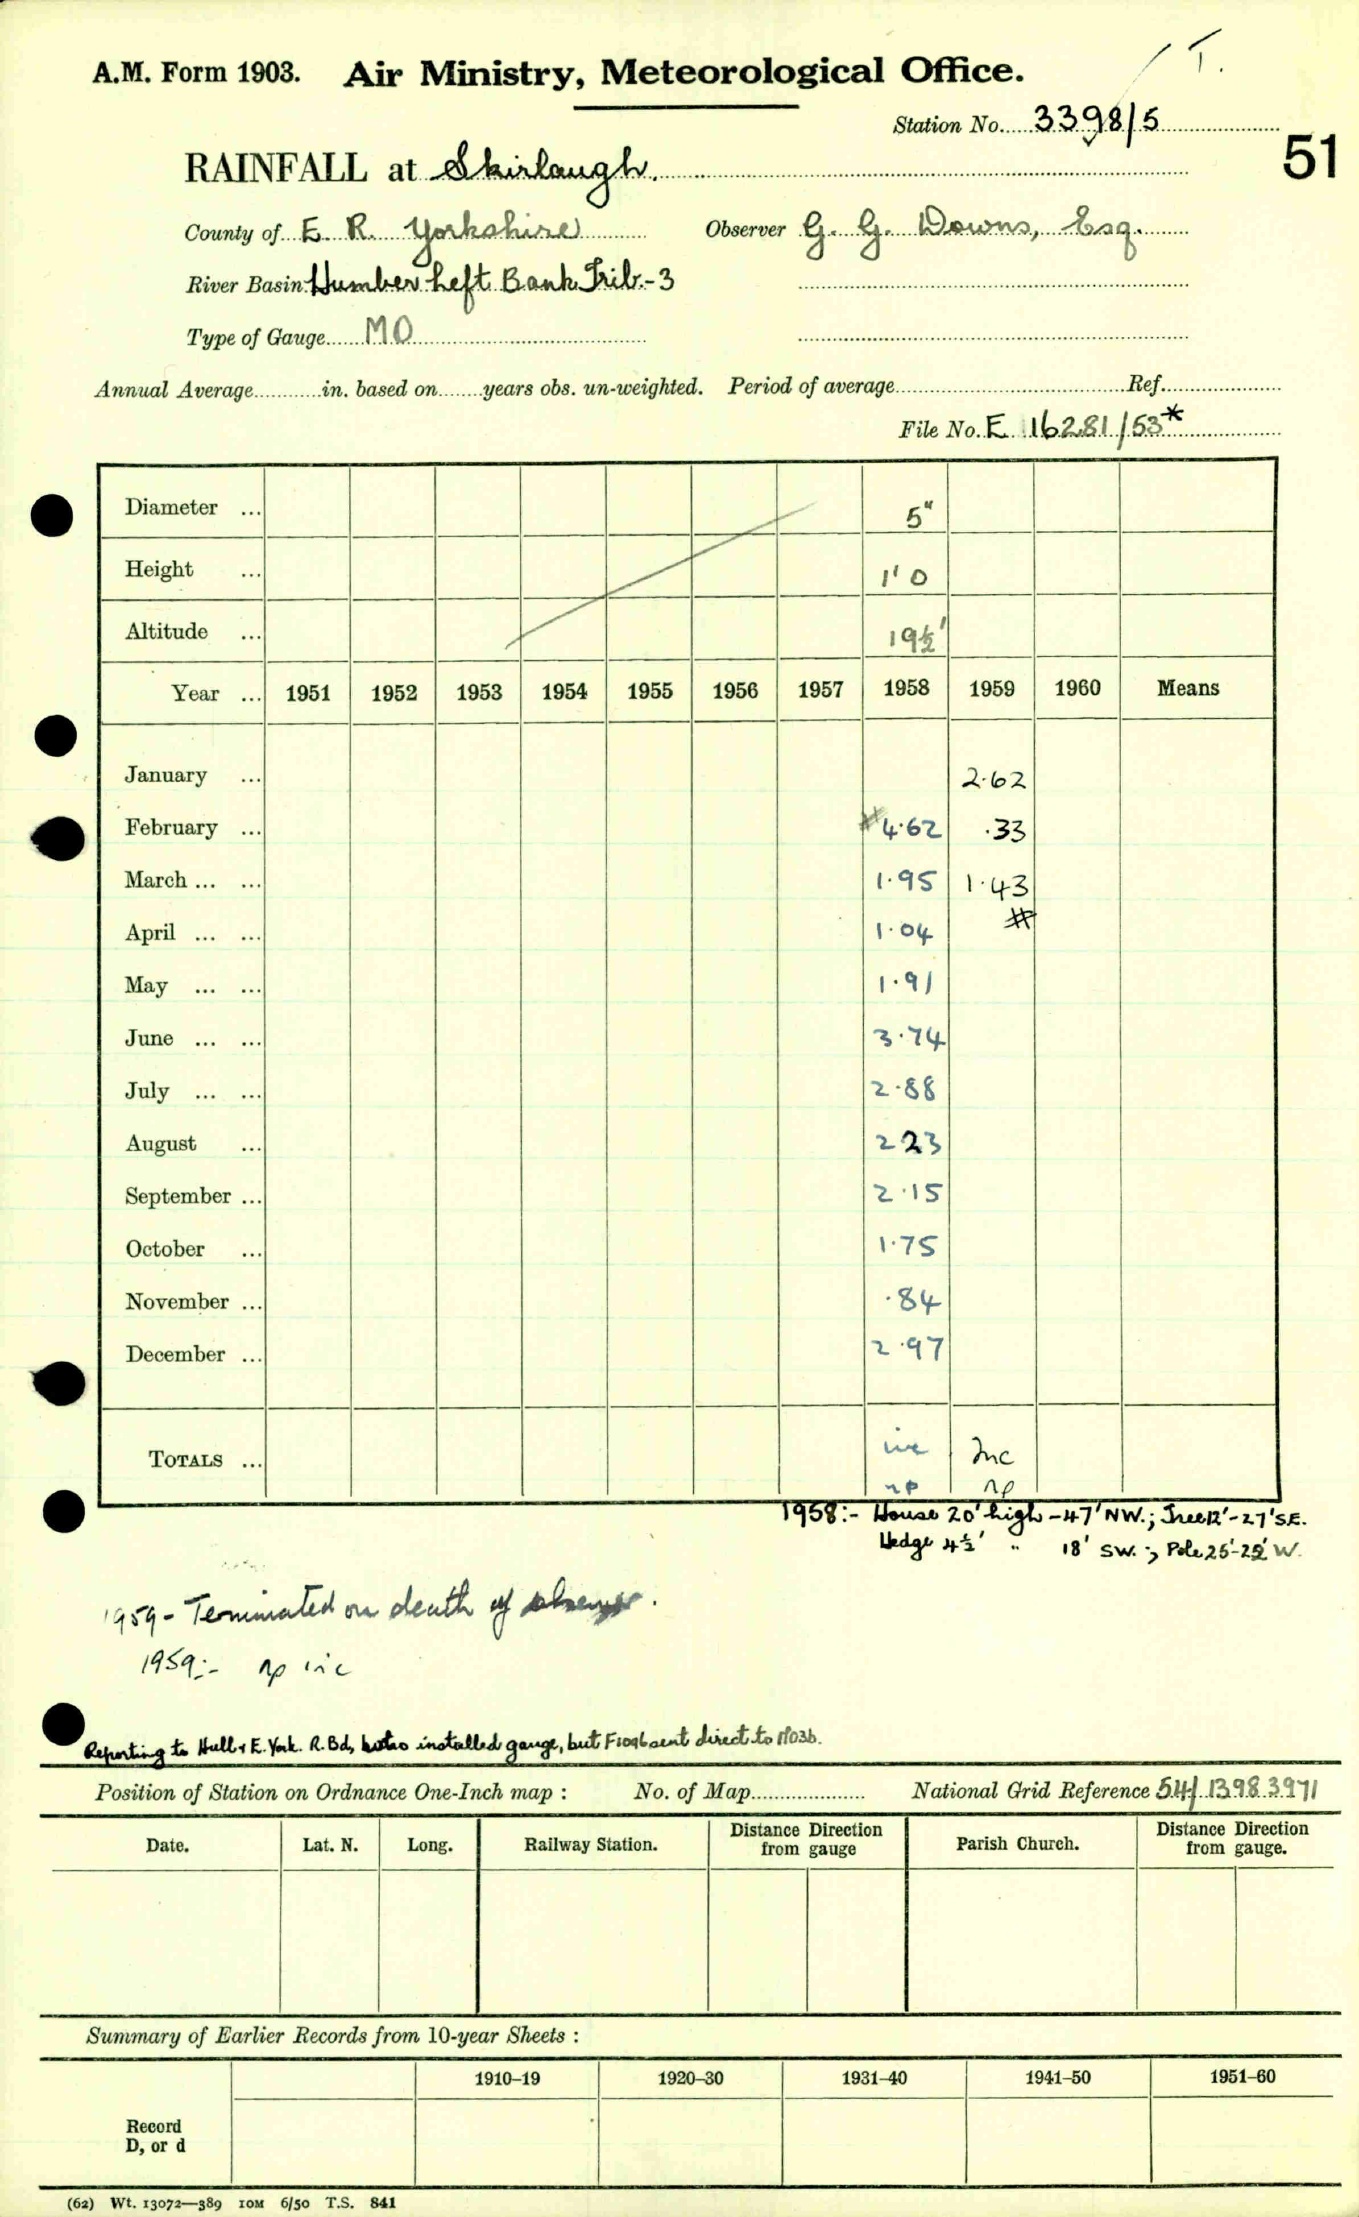 A.M. Form 1903. Air Ministry, Meteorological Office. T.
Station No. 3398/5
51
RAINFALL at Skirlaugh.
County of E. R. Yorkshire Observer G. G. Downs, Esq.
River Basin Humber Left Bank Trib.-3
Type of Gauge MO
Annual Average in. based on years obs. un-weighted. Period of average Ref.
File No. E 16281/53*
Diameter ... 5"
Height ... 1' 0
Altitude ... 19½'
Year ... 1951 1952 1953 1954 1955 1956 1957 1958 1959 1960 Means
January ... 2.62
February ... #4.62 .33
March ... ... 1.95 1.43
April ... ... 1.04 #
May ... ... 1.91
June ... ... 3.74
July ... ... 2.88
August ... 2 23
September ... 2.15
October ... 1.75
November ... .84
December ... 2.97
TOTALS ... inc Inc
np np
1958:- House 20' high -47' NW.; Tree 12'-27' S.E.
Hedge 4½' " 18' SW.; Pole 25'-25' W.
1959- Terminated on death of observer.
1959:- np inc
Reporting to Hull & E. York. R. Bd, who installed gauge, but F1096 sent direct to MO3b.
Position of Station on Ordnance One-Inch map : No. of Map National Grid Reference 54/ 1398 3971
Date. Lat. N. Long. Railway Station. Distance Direction from gauge Parish Church. Distance Direction from gauge.
Summary of Earlier Records from 10-year Sheets :
1910–19 1920–30 1931–40 1941–50 1951–60
Record
D, or d
(62) Wt. 13072—389 10M 6/50 T.S. 841